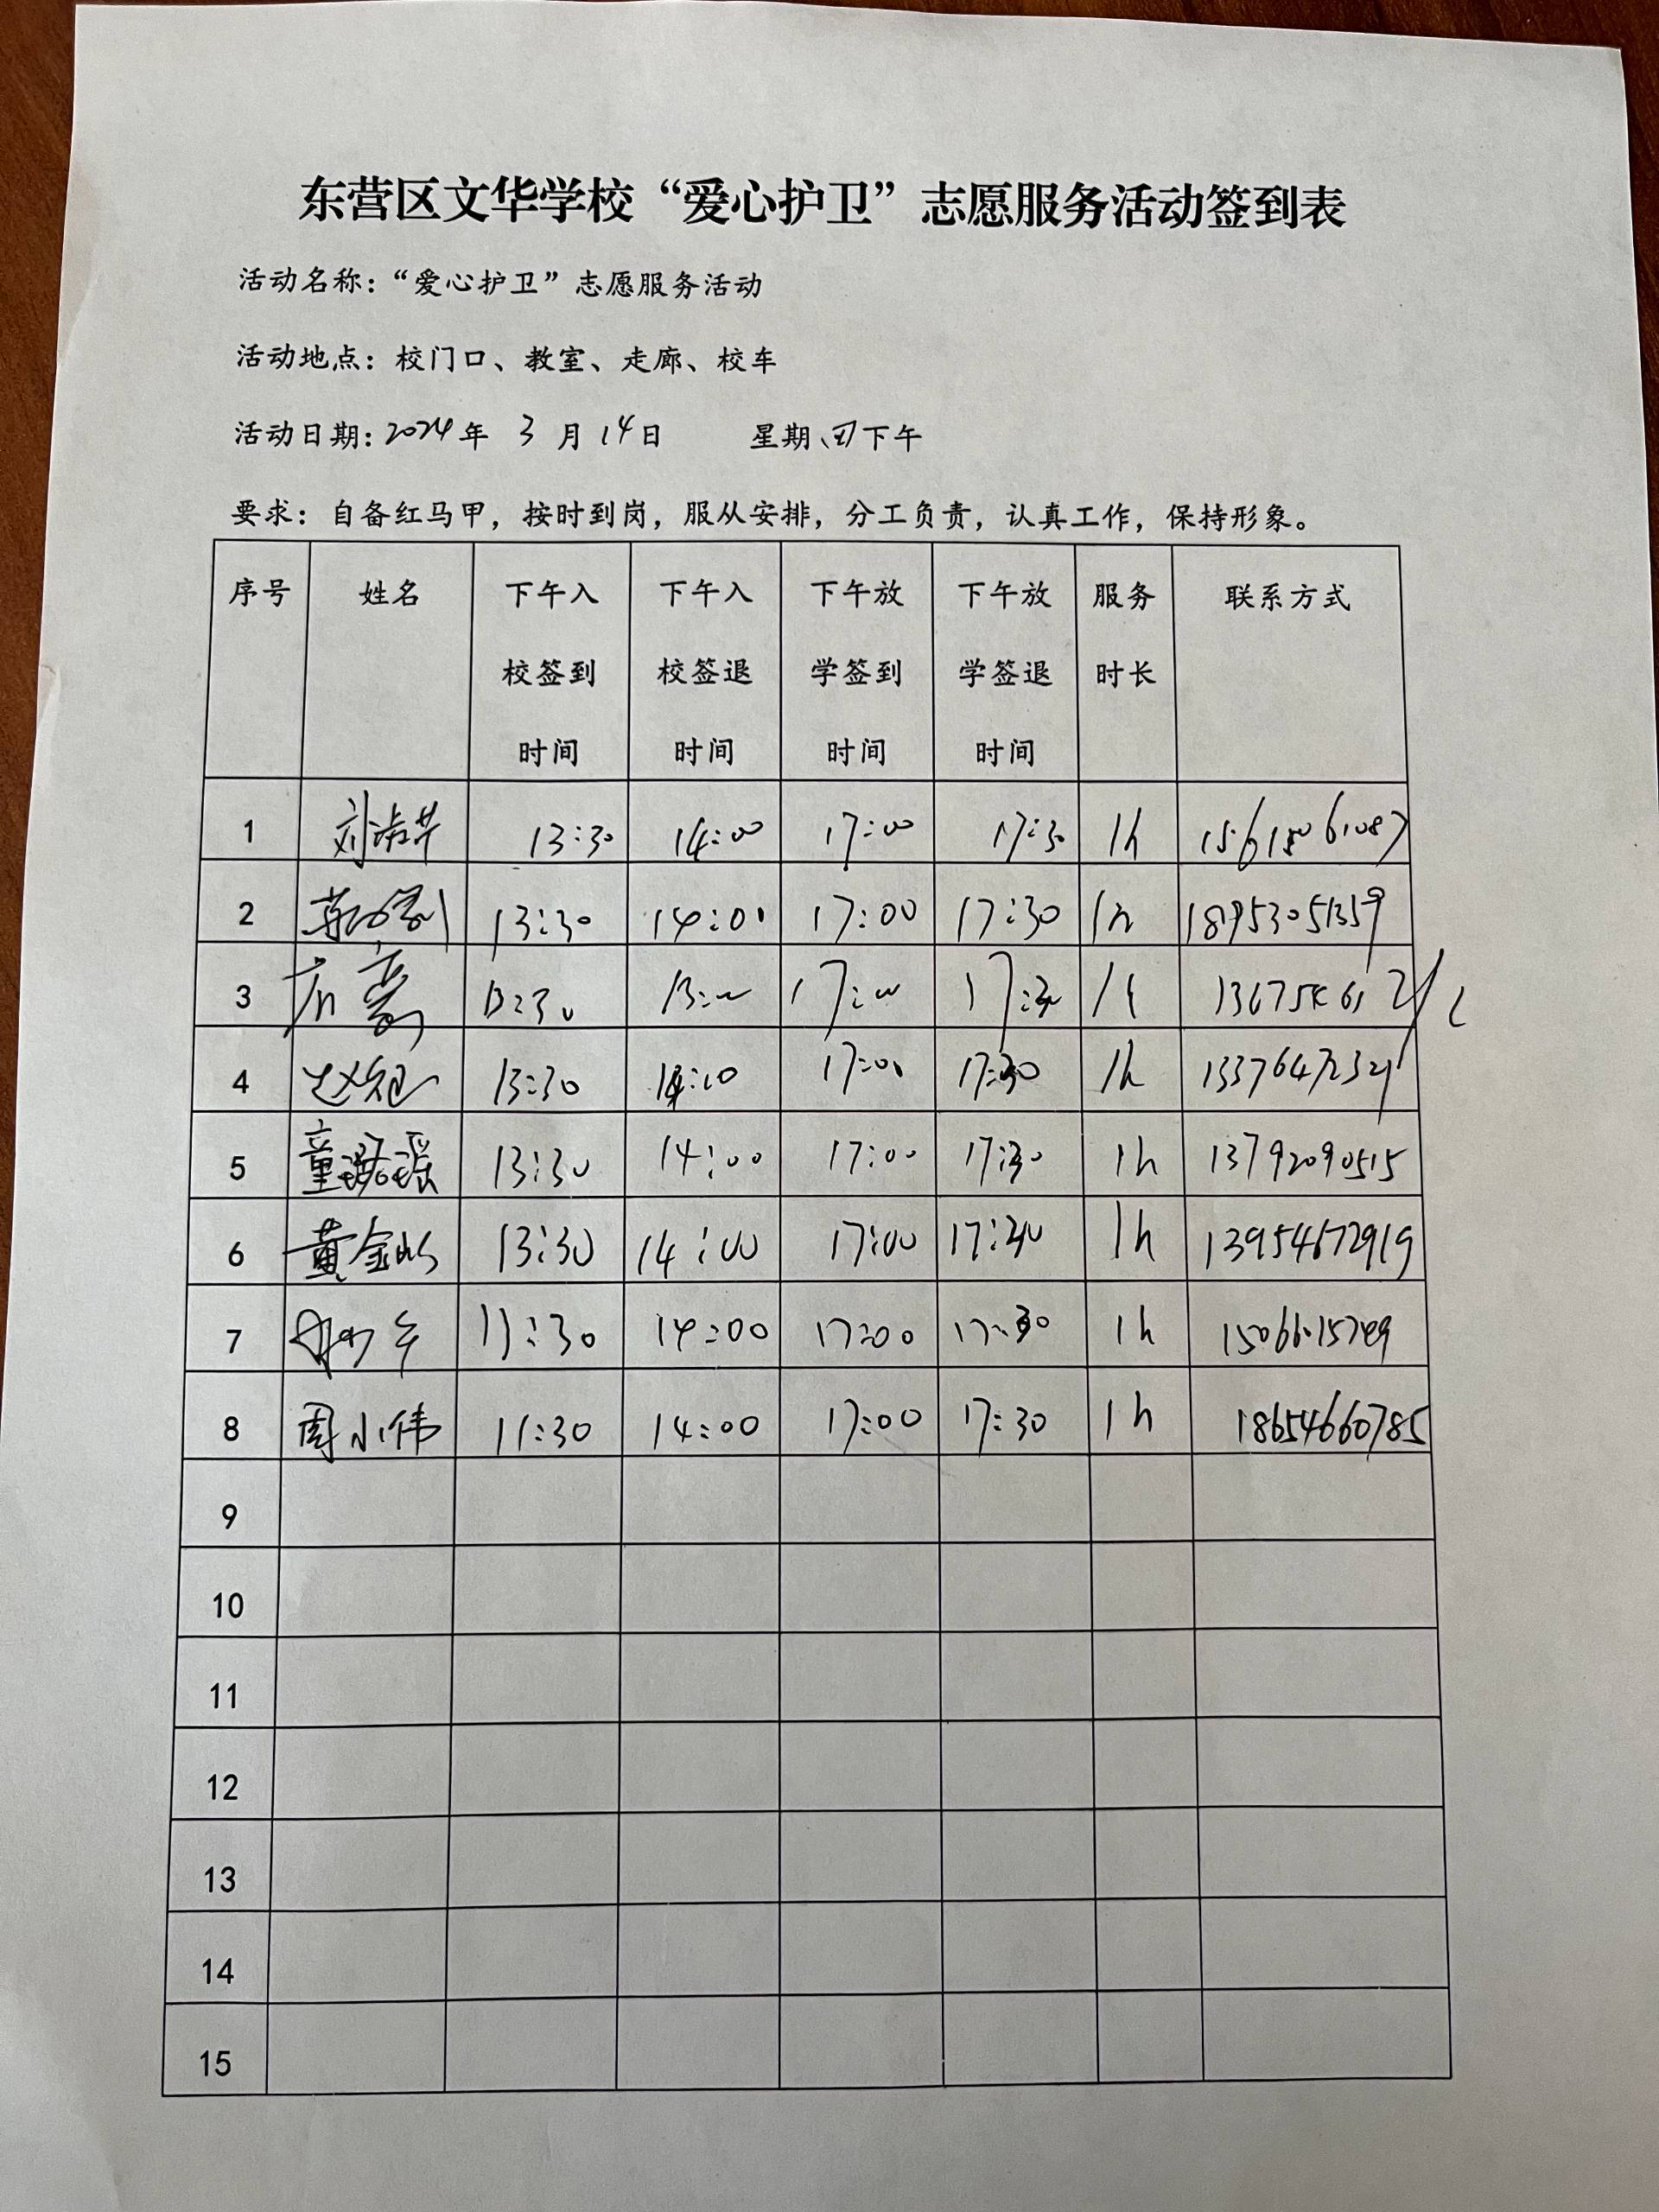 东营区文华学校“爱心护卫”志愿服务活动签到表
活动名称：“爱心护卫”志愿服务活动
活动地点：校门口、教室、走廊、校车
活动日期：2024年 3月14日 星期四下午
要求：自备红马甲，按时到岗，服从安排，分工负责，认真工作，保持形象。
序号 姓名 下午入校签到时间 下午入校签退时间 下午放学签到时间 下午放学签退时间 服务时长 联系方式
1 13:30 14:00 17:00 17:30 1h 15615061087
2 13:30 14:00 17:00 17:30 1h 18953051359
3 13:30 17:00 17:30
4 13:30 17:00 17:30 1h
5 13:30 14:00 17:00 17:30 1h 13792090515
6 13:30 14:00 17:00 17:30 1h 13954672919
7 14:00 17:00 17:30 1h
8 周小伟 11:30 14:00 17:00 17:30 1h 18654660785
9
10
11
12
13
14
15